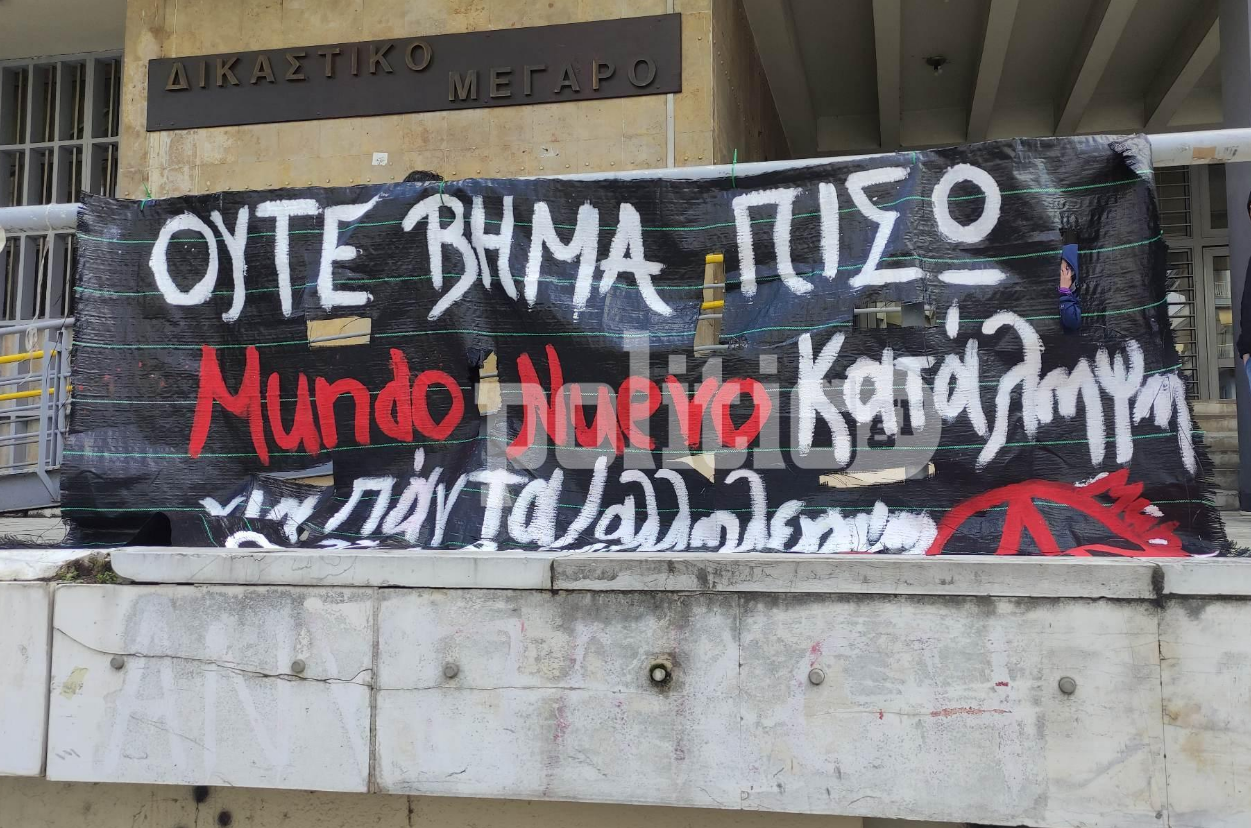 ΔΙΚΑΣΤΙΚΟ ΜΕΓΑΡΟ
ΟΥΤΕ ΒΗΜΑ ΠΙΣΩ
Mundo Nuevo Κατάληψη
για πάντα
politic
gr